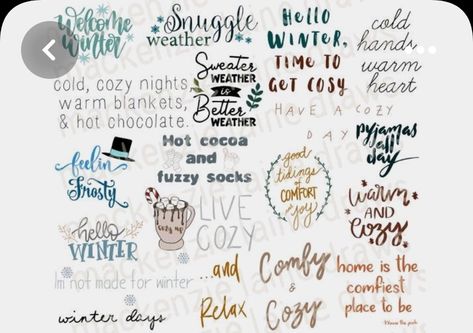 Welcome
Winter
Snuggle
weather
Hello
WINTER,
TIME TO
GET COSY
cold
hands
warm
heart
cold, cozy nights,
warm blankets,
& hot chocolate.
Sweater
WEATHER
is
Better
WEATHER
HAVE A COZY
DAY
pyjamas
all
day
feelin'
Frosty
Hot cocoa
and
fuzzy socks
good
tidings
of
COMFORT
and
joy
warm
AND
Cozy
hello
WINTER
COZY UP
LIVE
COZY
Im not made for winter
...and
Relax
Comfy
&
Cozy
home is the
comfiest
place to be
winter days